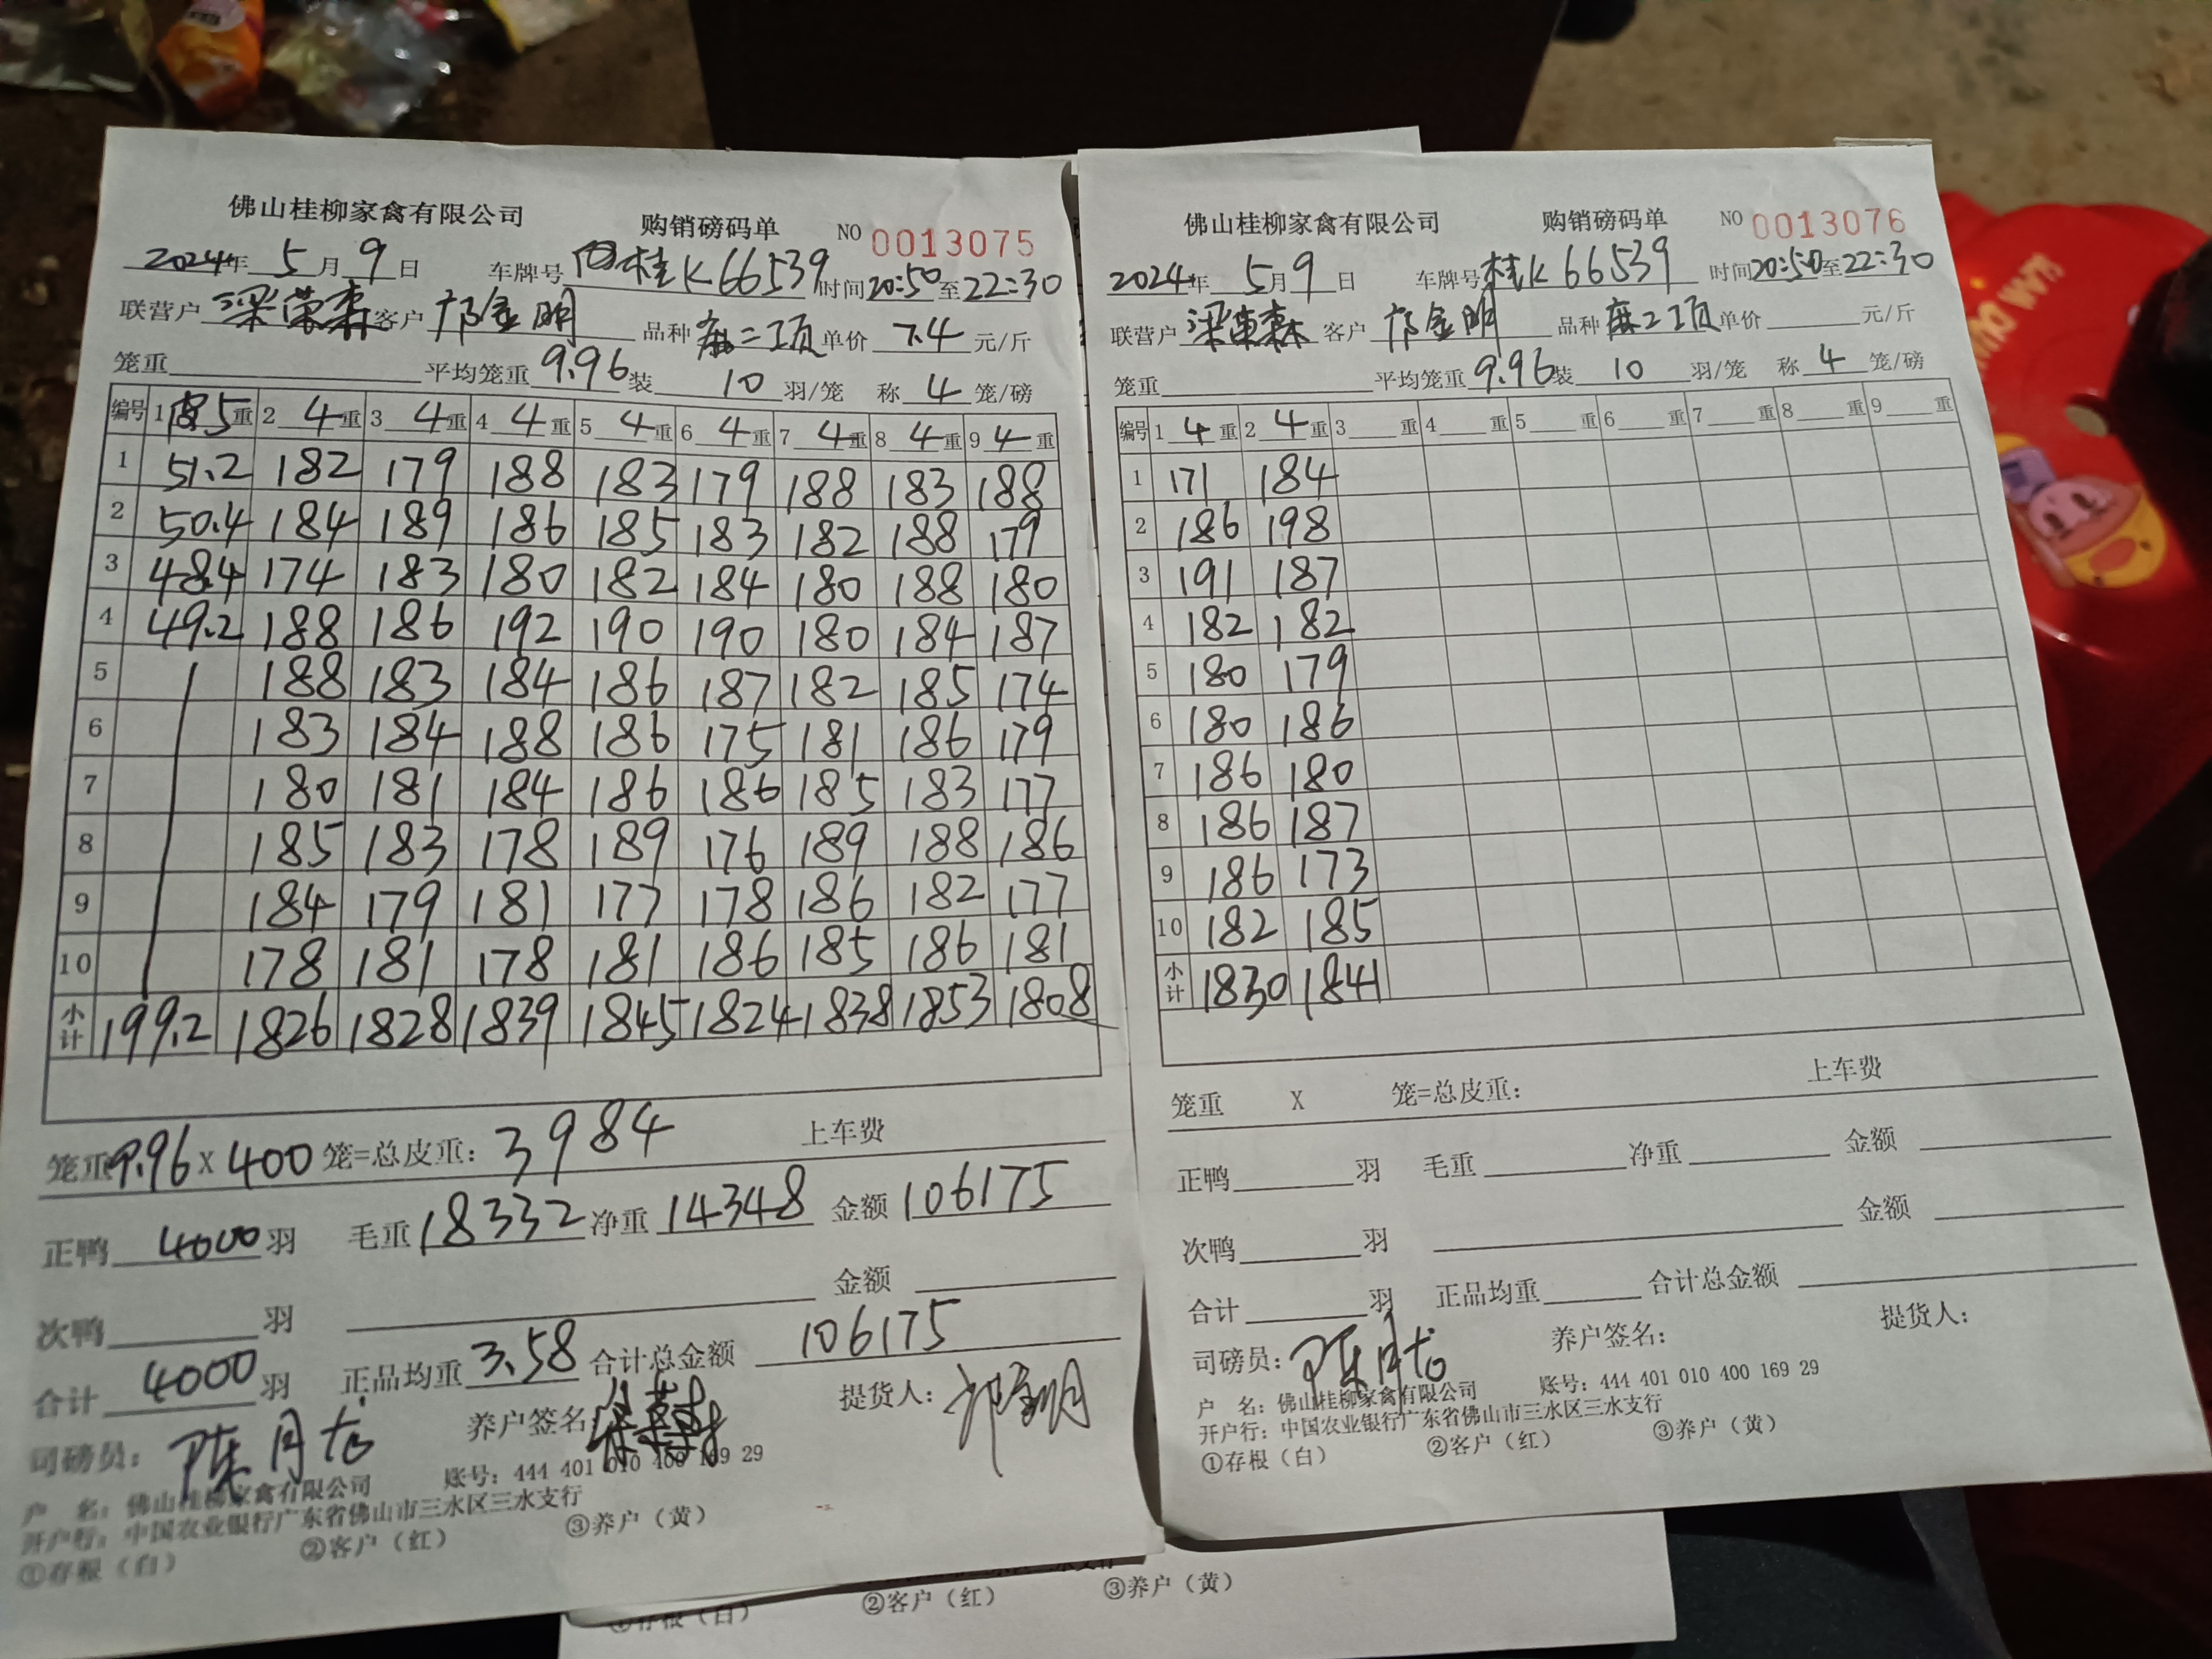 佛山桂柳家禽有限公司 购销磅码单 NO 0013075
2024年 5月 9日 车牌号 桂K66539 时间20:50至22:30
联营户 梁荣森 客户 邝金明 品种 麻二项 单价 7.4 元/斤
笼重 平均笼重 9.96 装 10 羽/笼 称 4 笼/磅
编号 1 5重 2 4重 3 4重 4 4重 5 4重 6 4重 7 4重 8 4重 9 4重
1 51.2 182 179 188 183 179 188 183 188
2 50.4 184 189 186 185 183 182 188 179
3 48.4 174 183 180 182 184 180 188 180
4 49.2 188 186 192 190 190 180 184 187
5 188 183 184 186 187 182 185 174
6 183 184 188 186 175 181 186 179
7 180 181 184 186 186 185 183 177
8 185 183 178 189 176 189 188 186
9 184 179 181 177 178 186 182 177
10 178 181 178 181 186 185 186 181
小计 199.2 1826 1828 1839 1845 1824 1838 1853 1808
笼重9.96 X 400 笼=总皮重: 3984 上车费
正鸭 4000 羽 毛重 18332 净重 14348 金额 106175
次鸭 羽 金额
合计 4000 羽 正品均重 3.58 合计总金额 106175
司磅员: 陈月龙 养户签名: 提货人: 邝金明
户 名: 佛山桂柳家禽有限公司 账号: 444 401 010 400 169 29
开户行: 中国农业银行广东省佛山市三水区三水支行
①存根(白) ②客户(红) ③养户(黄)
佛山桂柳家禽有限公司 购销磅码单 NO 0013076
2024年 5月9日 车牌号 桂K66539 时间20:50至22:30
联营户 梁荣森 客户 邝金明 品种 麻二项 单价 元/斤
笼重 平均笼重 9.96 装 10 羽/笼 称 4 笼/磅
编号 1 4重 2 4重 3 重 4 重 5 重 6 重 7 重 8 重 9 重
1 171 184
2 186 198
3 191 187
4 182 182
5 180 179
6 180 186
7 186 180
8 186 187
9 186 173
10 182 185
小计 1830 1841
笼重 X 笼=总皮重: 上车费
正鸭 羽 毛重 净重 金额
次鸭 羽 金额
合计 羽 正品均重 合计总金额
司磅员: 陈月龙 养户签名: 提货人:
户 名: 佛山桂柳家禽有限公司 账号: 444 401 010 400 169 29
开户行: 中国农业银行广东省佛山市三水区三水支行
①存根(白) ②客户(红) ③养户(黄)
①存根(白) ②客户(红) ③养户(黄)